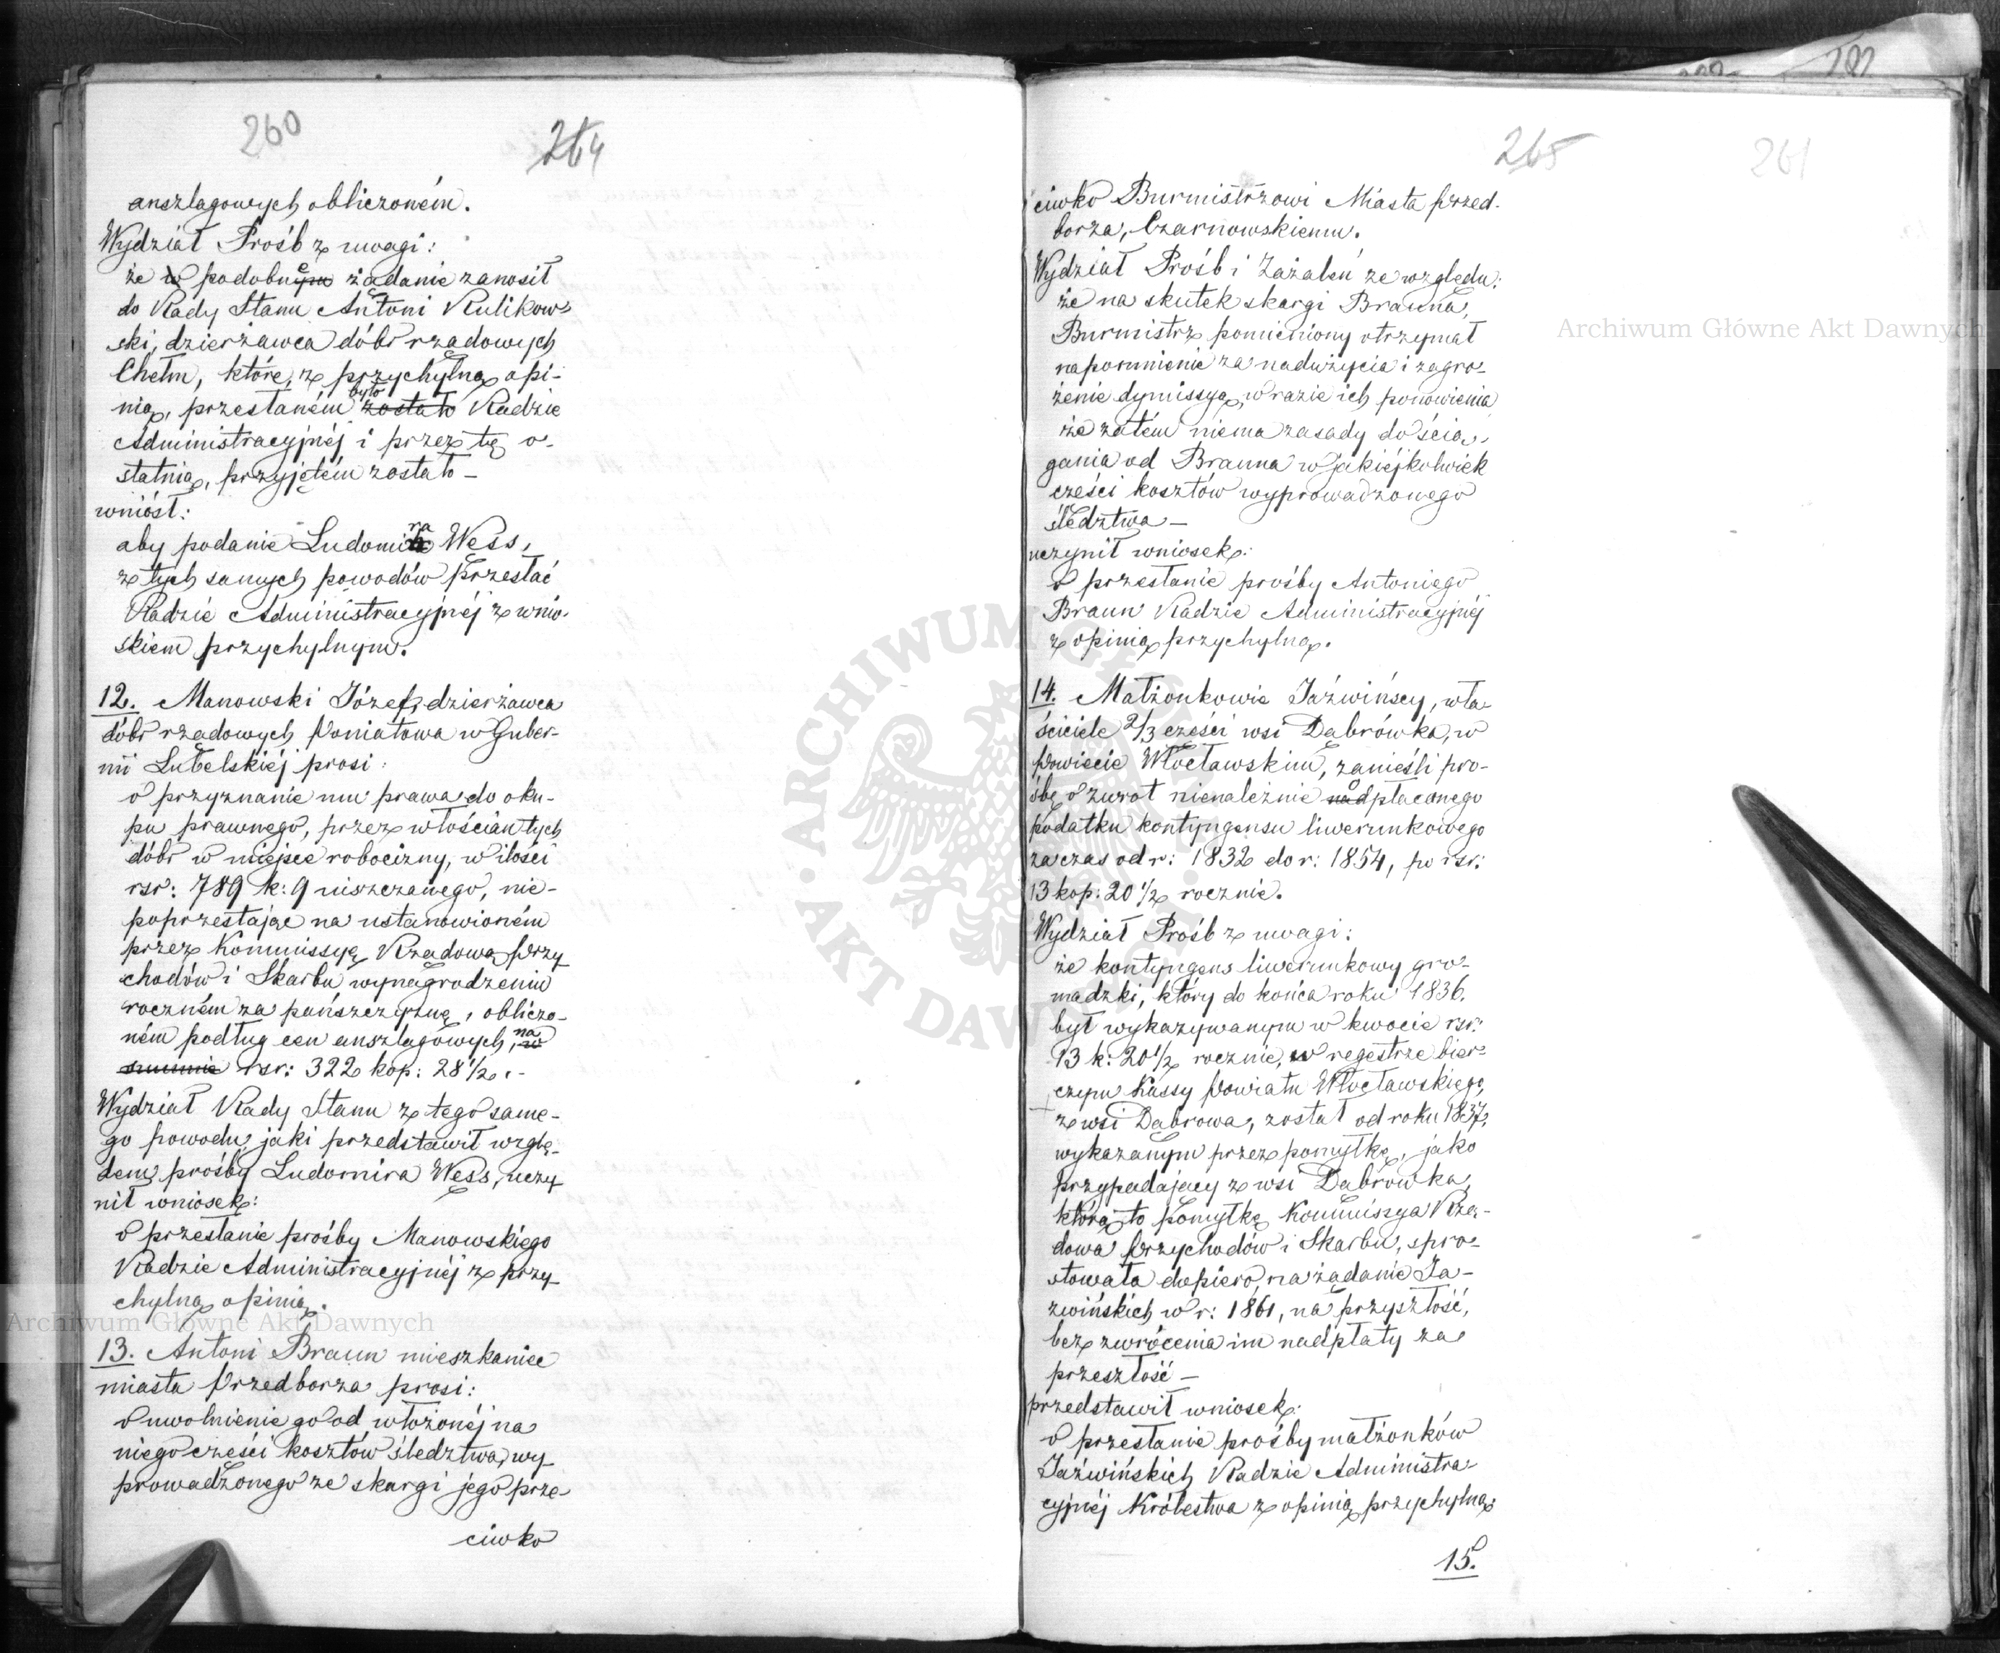 260
264
anszlagowych obliczoném.
Wydział Prośb z uwagi:
że w podobnym e żądanie zanosił
do Rady Stanu Antoni Kulikow-
ski, dzierżawca dóbr rządowych
Chełm, które, z przychylną opi-
nią, przesłaném zostało było Radzie
Administracyjnéj i przez tę o-
statnią, przyjętém zostało –
wniósł:
aby podanie Ludomira Wess,
z tych samych powodów przesłać
Radzie Administracyjnéj z wnio-
skiem przychylnym.
12. Manowski Józef, dzierżawca
dóbr rządowych Poniatowa w Guber-
nii Lubelskiéj prosi:
o przyznanie mu prawa do oku-
pu prawnego, przez włościan tych
dóbr w miejsce robocizny, w ilości
rsr: 789 k: 9 uiszczanego, nie-
poprzestając na ustanowioném
przez Kommissyę Rządową Przy
chodów i Skarbu wynagrodzeniu
roczném za pańszczyznę, obliczo-
ném podług cen anszlagowych, na w
summie rsr: 322 kop: 28 1/2.-
Wydział Rady Stanu z tego same-
go powodu jaki przedstawił wzglę-
dem prośby Ludomira Wess, uczy
nił wniosek:
o przesłanie prośby Manowskiego
Radzie Administracyjnéj z przy
chylną opinią.
13. Antoni Braun mieszkaniec
miasta Przedborza prosi:
o uwolnienie go od włożonéj na
niego części kosztów śledztwa, wy
prowadzonego ze skargi jego prze-
ciwko
265
261
ciwko Burmistrzowi Miasta Przed-
borza, Czarnowskiemu.
Wydział Prośb i Zażaleń ze względu:
że na skutek skargi Brauna,
Burmistrz pomieniony otrzymał
napomnienie za nadużycia i zagro-
żenie dymissyą, w razie ich ponowienia
że zatém niema zasady do ścią-
gania od Brauna w jakiéjkolwiek
części kosztów wyprowadzonego
śledztwa –
uczynił wniosek:
o przesłanie prośby Antoniego
Braun Radzie Administracyjnéj
z opinią przychylną.
14. Małżonkowie Jaźwińscy, wła-
ściciele 2/3 części wsi Dąbrówka, w
Powiecie Włocławskim, zanieśli pro-
śbę o zwrot nienależnie nadpłaconego
podatku kontyngensu liwerunkowego
za czas od r: 1832 do r: 1854, po rsr:
13 kop: 20 1/2 rocznie.
Wydział Prośb z uwagi:
że kontyngens liwerunkowy gro-
madzki, który do końca roku 1836.
był wykazywanym w kwocie rsr:
13 k: 20 1/2 rocznie, w regestrze bier-
czym Kassy Powiatu Włocławskiego,
z wsi Dąbrowa, został od roku 1837.
wykazanym przez pomyłkę, jako
przypadający z wsi Dąbrówka,
którą to pomyłkę Kommissya Rzą-
dowa Przychodów i Skarbu, spro-
stowała dopiero na żądanie Ja-
zwińskich w r: 1861, na przyszłość,
bez zwrócenia im nadpłaty za
przeszłość –
przedstawił wniosek:
o przesłanie prośby małżonków
Jaźwińskich Radzie Administra-
cyjnéj Królestwa z opinią przychylną;
15.
Archiwum Główne Akt Dawnych
Archiwum Główne Akt Dawnych
ARCHIWUM GŁÓWNE · AKT DAWNYCH ·